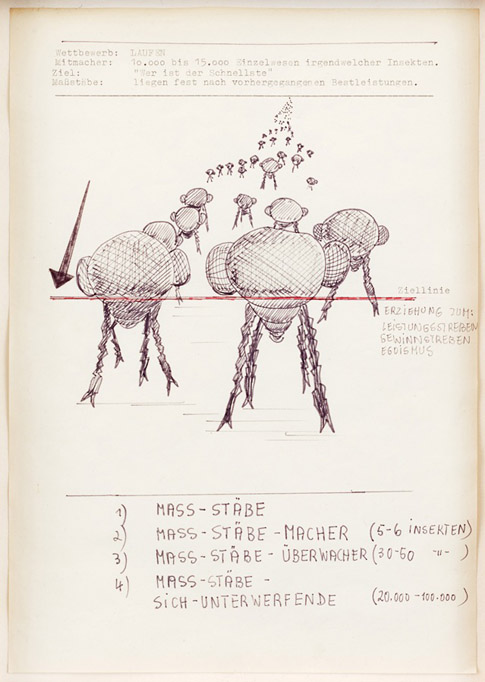 Wettbewerb: LAUFEN
Mitmacher: 10.000 bis 15.000 Einzelwesen irgendwelcher Insekten.
Ziel: "Wer ist der Schnellste"
Maßstäbe: liegen fest nach vorhergegangenen Bestleistungen.
Ziellinie
ERZIEHUNG ZUM:
LEISTUNGSSTREBEN
GEWINNSTREBEN
EGOISMUS
1) MASS-STÄBE
2) MASS-STÄBE-MACHER (5-6 INSEKTEN)
3) MASS-STÄBE-ÜBERWACHER (30-60 -"- )
4) MASS-STÄBE-
SICH-UNTERWERFENDE (20.000-100.000)